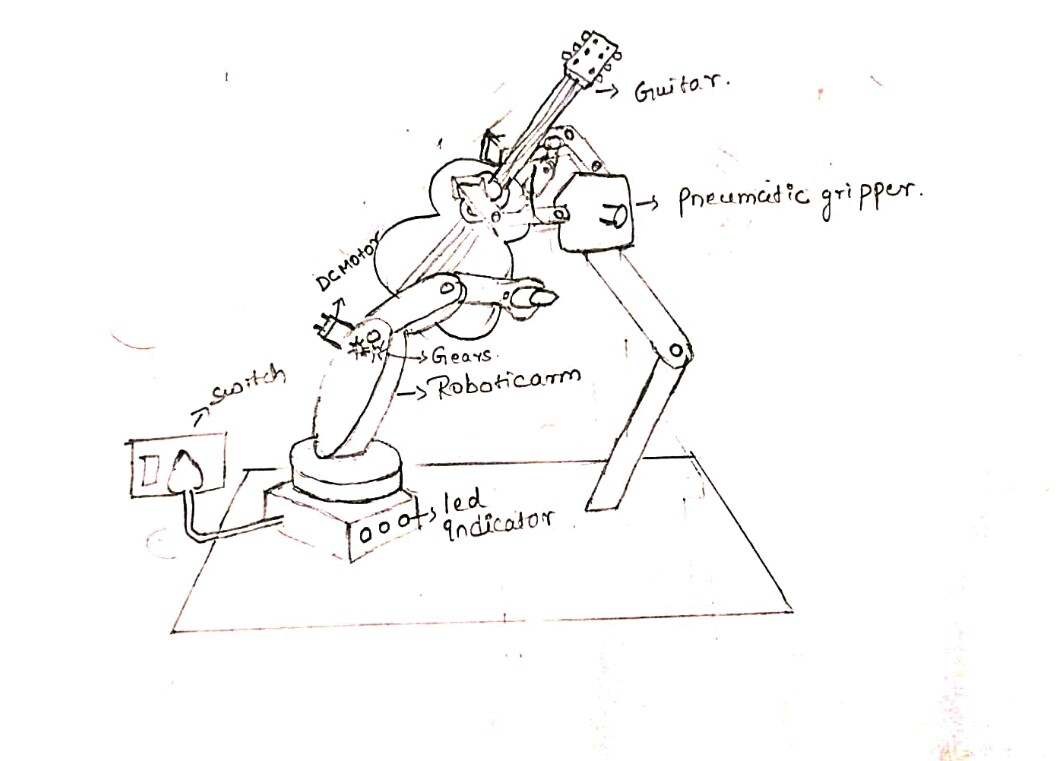 Guitar.
Pneumatic gripper.
DC Motor
Gears.
Robotic arm
Switch
led
indicator